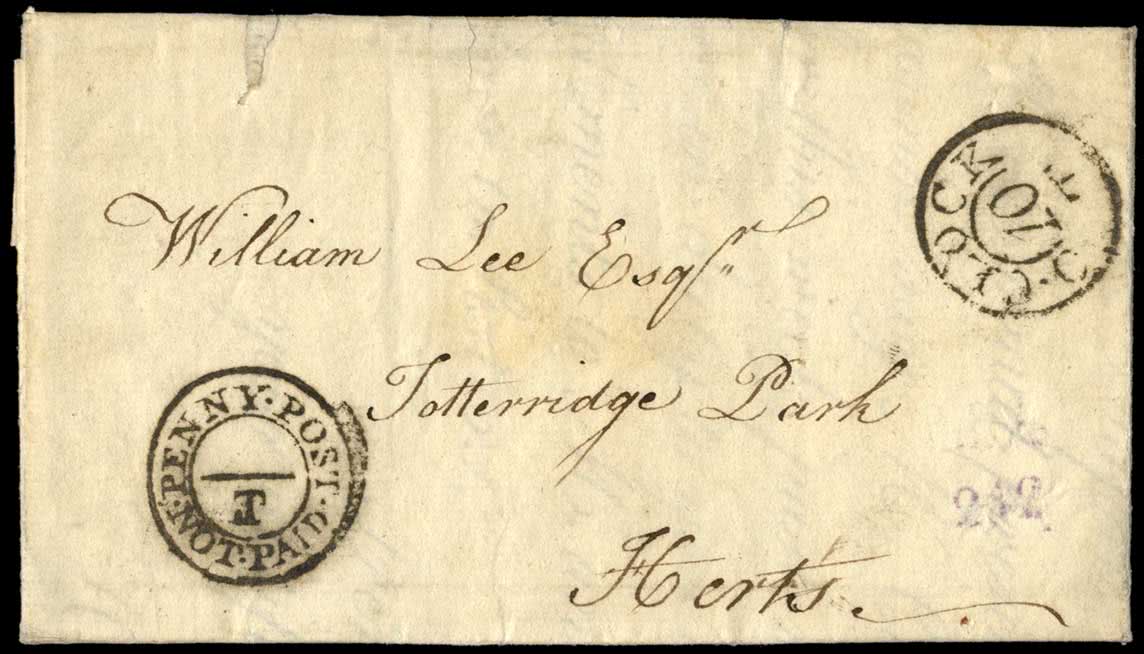 William Lee Esqr.
Totterridge Park
Herts
PENNY·POST·NOT·PAID·
T
10 O·CLOCK T